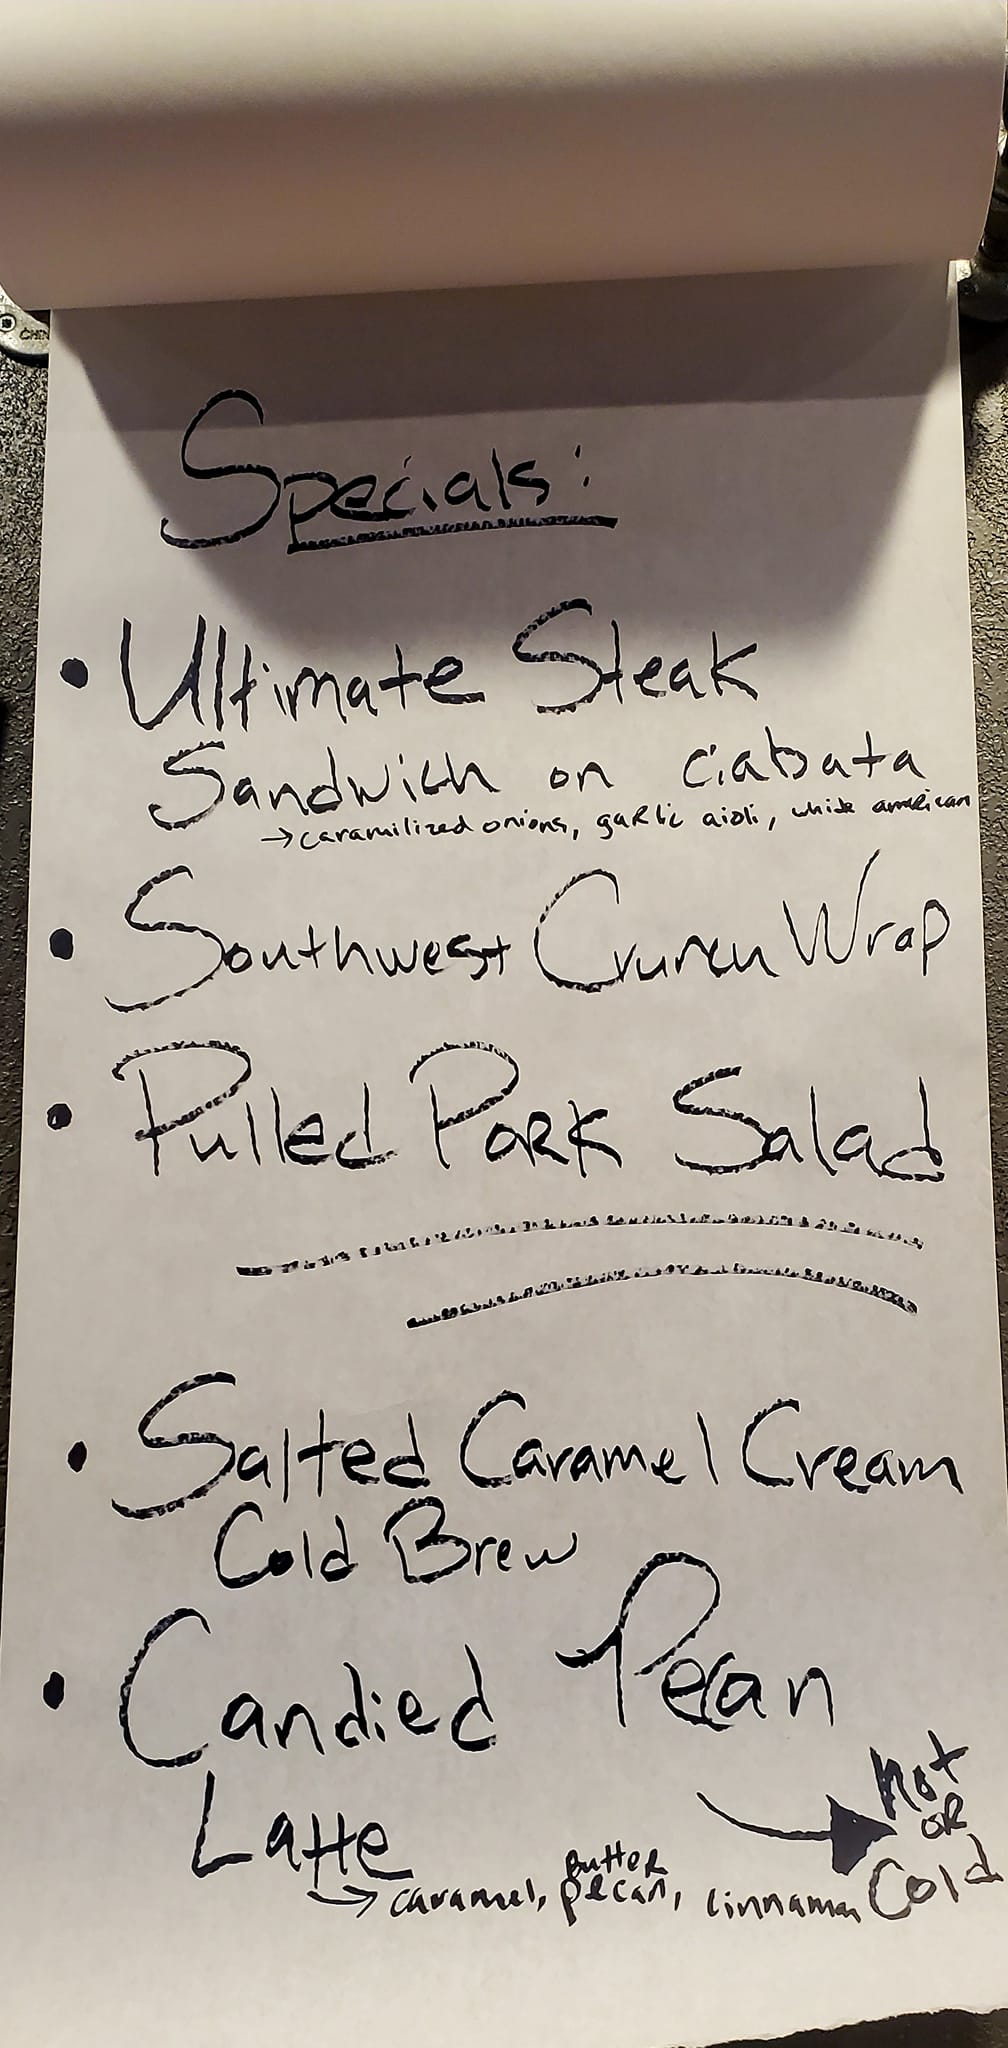 Specials:
• Ultimate Steak
Sandwich on ciabata
→ caramilized onions, garlic aioli, white american
• Southwest Crunch Wrap
• Pulled Pork Salad
• Salted Caramel Cream
Cold Brew
• Candied Pecan
Latte
Hot
OR
Cold
→ caramel, butter pecan, cinnamon